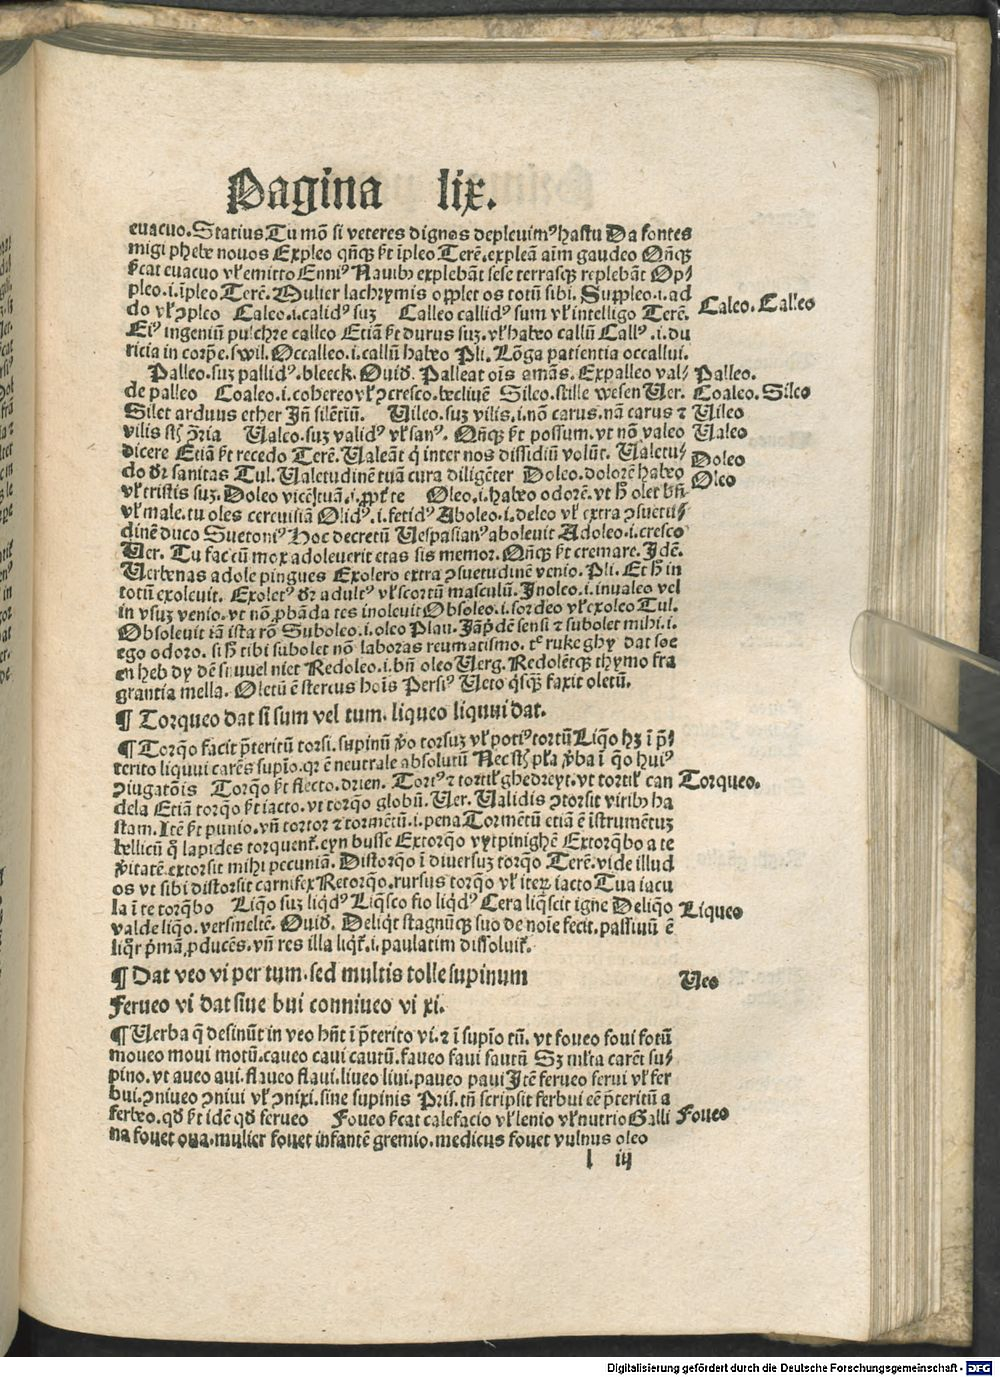 Pagina lix.
evacuo. Statius Tu mõ si veteres dignos deplevimꝰ haustu Da fontes
migi phebe novos Expleo qñq̃ ẜt ĩpleo Terẽ. expleã aĩm gaudeo Qñq̃
ẜcat evacuo vƚ emitto Enniꝰ Navibꝫ explebãt sese terrasqꝫ replebãt Op⸗
pleo .i. ĩpleo Terẽ. Mulier lachrymis opplet os totũ sibi. Suppleo .i. ad
do vƚ ꝯpleo Caleo .i. calidꝰ suꝫ Calleo callidꝰ sum vƚ intelligo Terẽ.
Caleo. Calleo
Eiꝰ ingeniũ pulchre calleo Etiã ẜt durus suꝫ. vƚ habeo callũ Callꝰ .i. du
ricia in corꝑe. swil. Occalleo .i. callũ habeo Pli. Lõga patientia occallui.
Palleo. suꝫ pallidꝰ. bleeck. Ouiđ. Palleat oĩs amãs. Expalleo val⸗
Palleo.
de palleo Coaleo .i. cohereo vƚ ꝯcresco. becliue Sileo. stille wesen Uer.
Coaleo. Sileo
Silet arduus ether Jñ silẽtiũ. Uileo. suꝫ vilis .i. nõ carus. nã carus ⁊
Uileo
vilis sũt ꝯ̃ria Ualeo. suꝫ validꝰ vƚ sanꝰ. Qñq̃ ẜt possum. vt nõ valeo
Ualeo
dicere Etiã ẜt recedo Terẽ. Ualeãt q̇ inter nos dissidiũ volũt. Ualetu⸗
do đr sanitas Tul. Ualetudinẽ tuã cura diligẽter Doleo. dolorẽ habeo
Doleo
vƚ tristis suꝫ. Doleo vicẽ tuã .i. ꝓpt̃ te Oleo .i. habeo odorẽ. vt ħ olet bñ
Oleo
vƚ male. tu oles cereuisiã Olidꝰ .i. fetidꝰ Aboleo .i. deleo vƚ extra ꝯsuetu⸗
dinẽ duco Suetoniꝰ Hoc decretũ Uespasianꝰ aboleuit Adoleo .i. cresco
Uer. Tu fac cũ mox adoleuerit etas sis memor. Qñq̃ ẜt cremare. Jdẽ.
Uerbenas adole pingues Exolero extra ꝯsuetudinẽ venio. Pli. Et ħ in
totũ exoleuit. Exoletꝰ đr adultꝰ vƚ scortũ masculũ. Jnoleo .i. invaleo vel
in vsuꝫ venio. vt nõ ꝓbãda res inoleuit Obsoleo .i. sordeo vƚ exoleo Tul.
Obsoleuit iã ista rõ Suboleo .i. oleo Plau. Jãp̃dẽ sensi ⁊ subolet mihi .i.
ego odoro. si ħ tibi subolet nõ laboras reumatismo. rukeghy dat soe
en heb dy dẽ snuuel niet Redoleo .i. bñ oleo Uerg. Redolẽtqꝫ thymo fra
grantia mella. Oletũ ẽ stercus hoĩs Persiꝰ Ueto q̇sq̃ faxit oletũ.
¶ Torqueo dat si sum vel tum. liqueo liquui dat.
¶ Torq̃o facit p̃teritũ torsi. supinũ ỏo torsuꝫ vƚ potiꝰ tortũ Liq̃o hꝫ ĩ p̃⸗
terito liquui carẽs supĩo. qꝛ ẽ neutrale absolutũ Nec sũt pƚa ṽba ĩ q̃o huiꝰ
ꝯiugatõis Torq̃o ẜt flecto. drien. Tortꝰ ⁊ tortiƚ ghedreyt. vt tortiƚ can
Torqueo.
dela Etiã torq̃o ẜt iacto. vt torq̃o globũ. Uer. Ualidis ꝯtorsit viribꝰ ha
stam. Jtẽ ẜt punio. vñ tortor ⁊ tormẽtũ .i. pena Tormẽtũ etiã ẽ ĩstrumẽtuꝫ
bellicũ q̃ lapides torquent̃. eyn busse Extorq̃o vytpinighẽ Extorq̃bo a te
ṽitatẽ. extorsit mihi pecuniã. Distorq̃o ĩ diuersuꝫ torq̃o Terẽ. vide illud
os vt sibi distorsit carnifex Retorq̃o. rursus torq̃o vƚ iteꝝ iacto Tua iacu
la ĩ te torq̃bo Liq̃o suꝫ liq̇dꝰ Liq̃sco fio liq̇dꝰ Cera liq̃scit igne Deliq̃o
Liqueo
valde liq̃o. versmeltẽ. Ouiđ. Deliq̃t stagnũqꝫ suo de noĩe fecit. passiuũ ẽ
liq̃r p̃mã ꝓducẽs. vñ res illa liq̃t̃ .i. paulatim dissoluit̃.
¶ Dat veo vi per tum. sed multis tolle supinum
Ueo
Ferueo vi dat siue bui conniueo vi xi.
¶ Uerba q̃ desinũt in veo hñt ĩ p̃terito vi. ⁊ ĩ supĩo tũ. vt foueo foui fotũ
moueo moui motũ. caueo caui cautũ. faueo faui fautũ Sꝫ mƚta carẽt su⸗
pino. vt aueo aui. flaueo flaui. liueo liui. paueo paui Jtẽ ferueo ferui vƚ fer
bui. ꝯniueo ꝯniui vƚ ꝯnixi. sine supinis Pris. tñ scripsit ferbui eẽ p̃teritũ a
ferbeo. qđ ẜt idẽ qđ ferueo Foueo ẜcat calefacio vƚ lenio vƚ nutrio Galli
Foueo
na fouet oua. mulier fouet infantẽ gremio. medicus fouet vulnus oleo
l iij
Digitalisierung gefördert durch die Deutsche Forschungsgemeinschaft - DFG